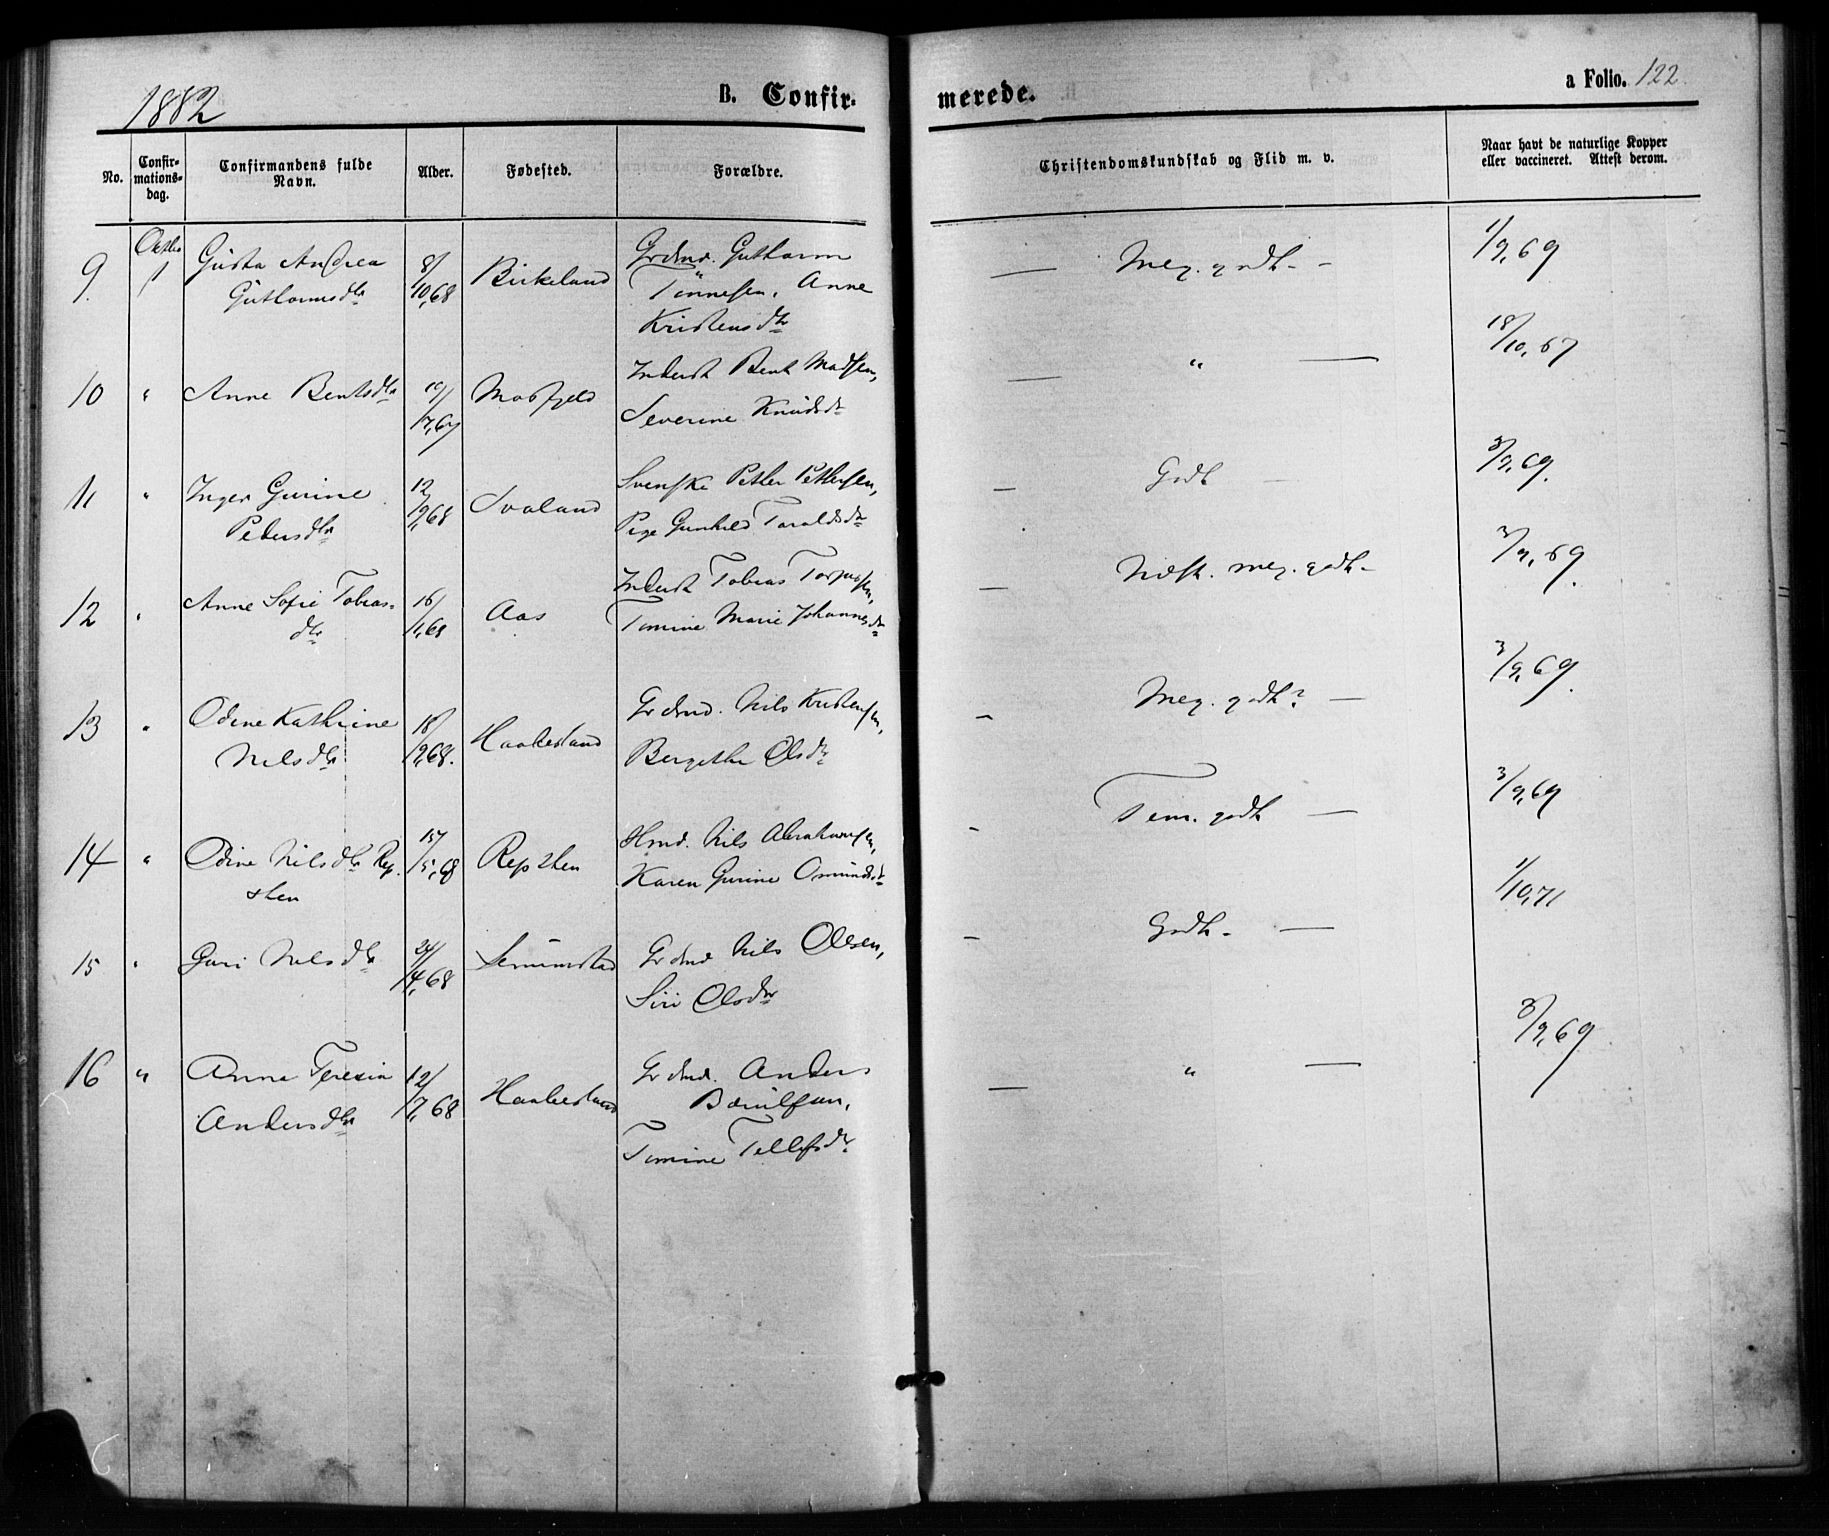 1882
B. Confir-
merede.
a Folio. 122.
No.
Confir-
mations-
dag.
Confirmandens fulde
Navn.
Alder.
Fødested.
Forældre.
Christendomskundskab og Flid m. v.
Naar havt de naturlige Kopper
eller vaccineret. Attest derom.
9 Octbr 1 Gusta Andrea Guthormsdtr 8/10,68 Birkeland Grdmd. Guthorm
Tønnesen, Anne
Kristensdtr
— Meg. godt - - 1/9,69
10 " Anne Bentsdtr 19/7,67 Mosfjeld Inderst Bent Madsen,
Severine Knudsdtr
— " — 18/10,67
11 " Inger Gurine
Pedersdtr 12/9,68 Svaland Svenske Petter Pettersen,
Pige Gunhild Taraldsdtr
— Godt — 3/9,69.
12 " Anne Sofie Tobias-
dtr 16/1,68 Aas Inderst Tobias
Tomine Marie Johannesdtr
— Noksaa meg. godt - 3/9,69.
13 " Odine Kathrine
Nilsdtr 18/9,68. Haabesland Grdmd. Nils Kristensen,
Bergithe Olsdtr
— Meg. godt? — 3/9,69.
14 " Odine Nilsdtr Rep-
sten 15/5,68 Repsten Hmd. Nils Abrahamsen,
Karen Gurine Omundsdtr
- Tem. godt — 3/9,69
15 " Guri Nilsdtr 24/4,68 Senumstad Grdmd Nils Olsen,
Siri Olsdtr
- Godt - — 1/10,71
16 " Anne Teresia
Andersdtr 12/7,68 Haabesland Grdmd. Anders
Tomine Tellefsdtr
— " — 3/9,69.